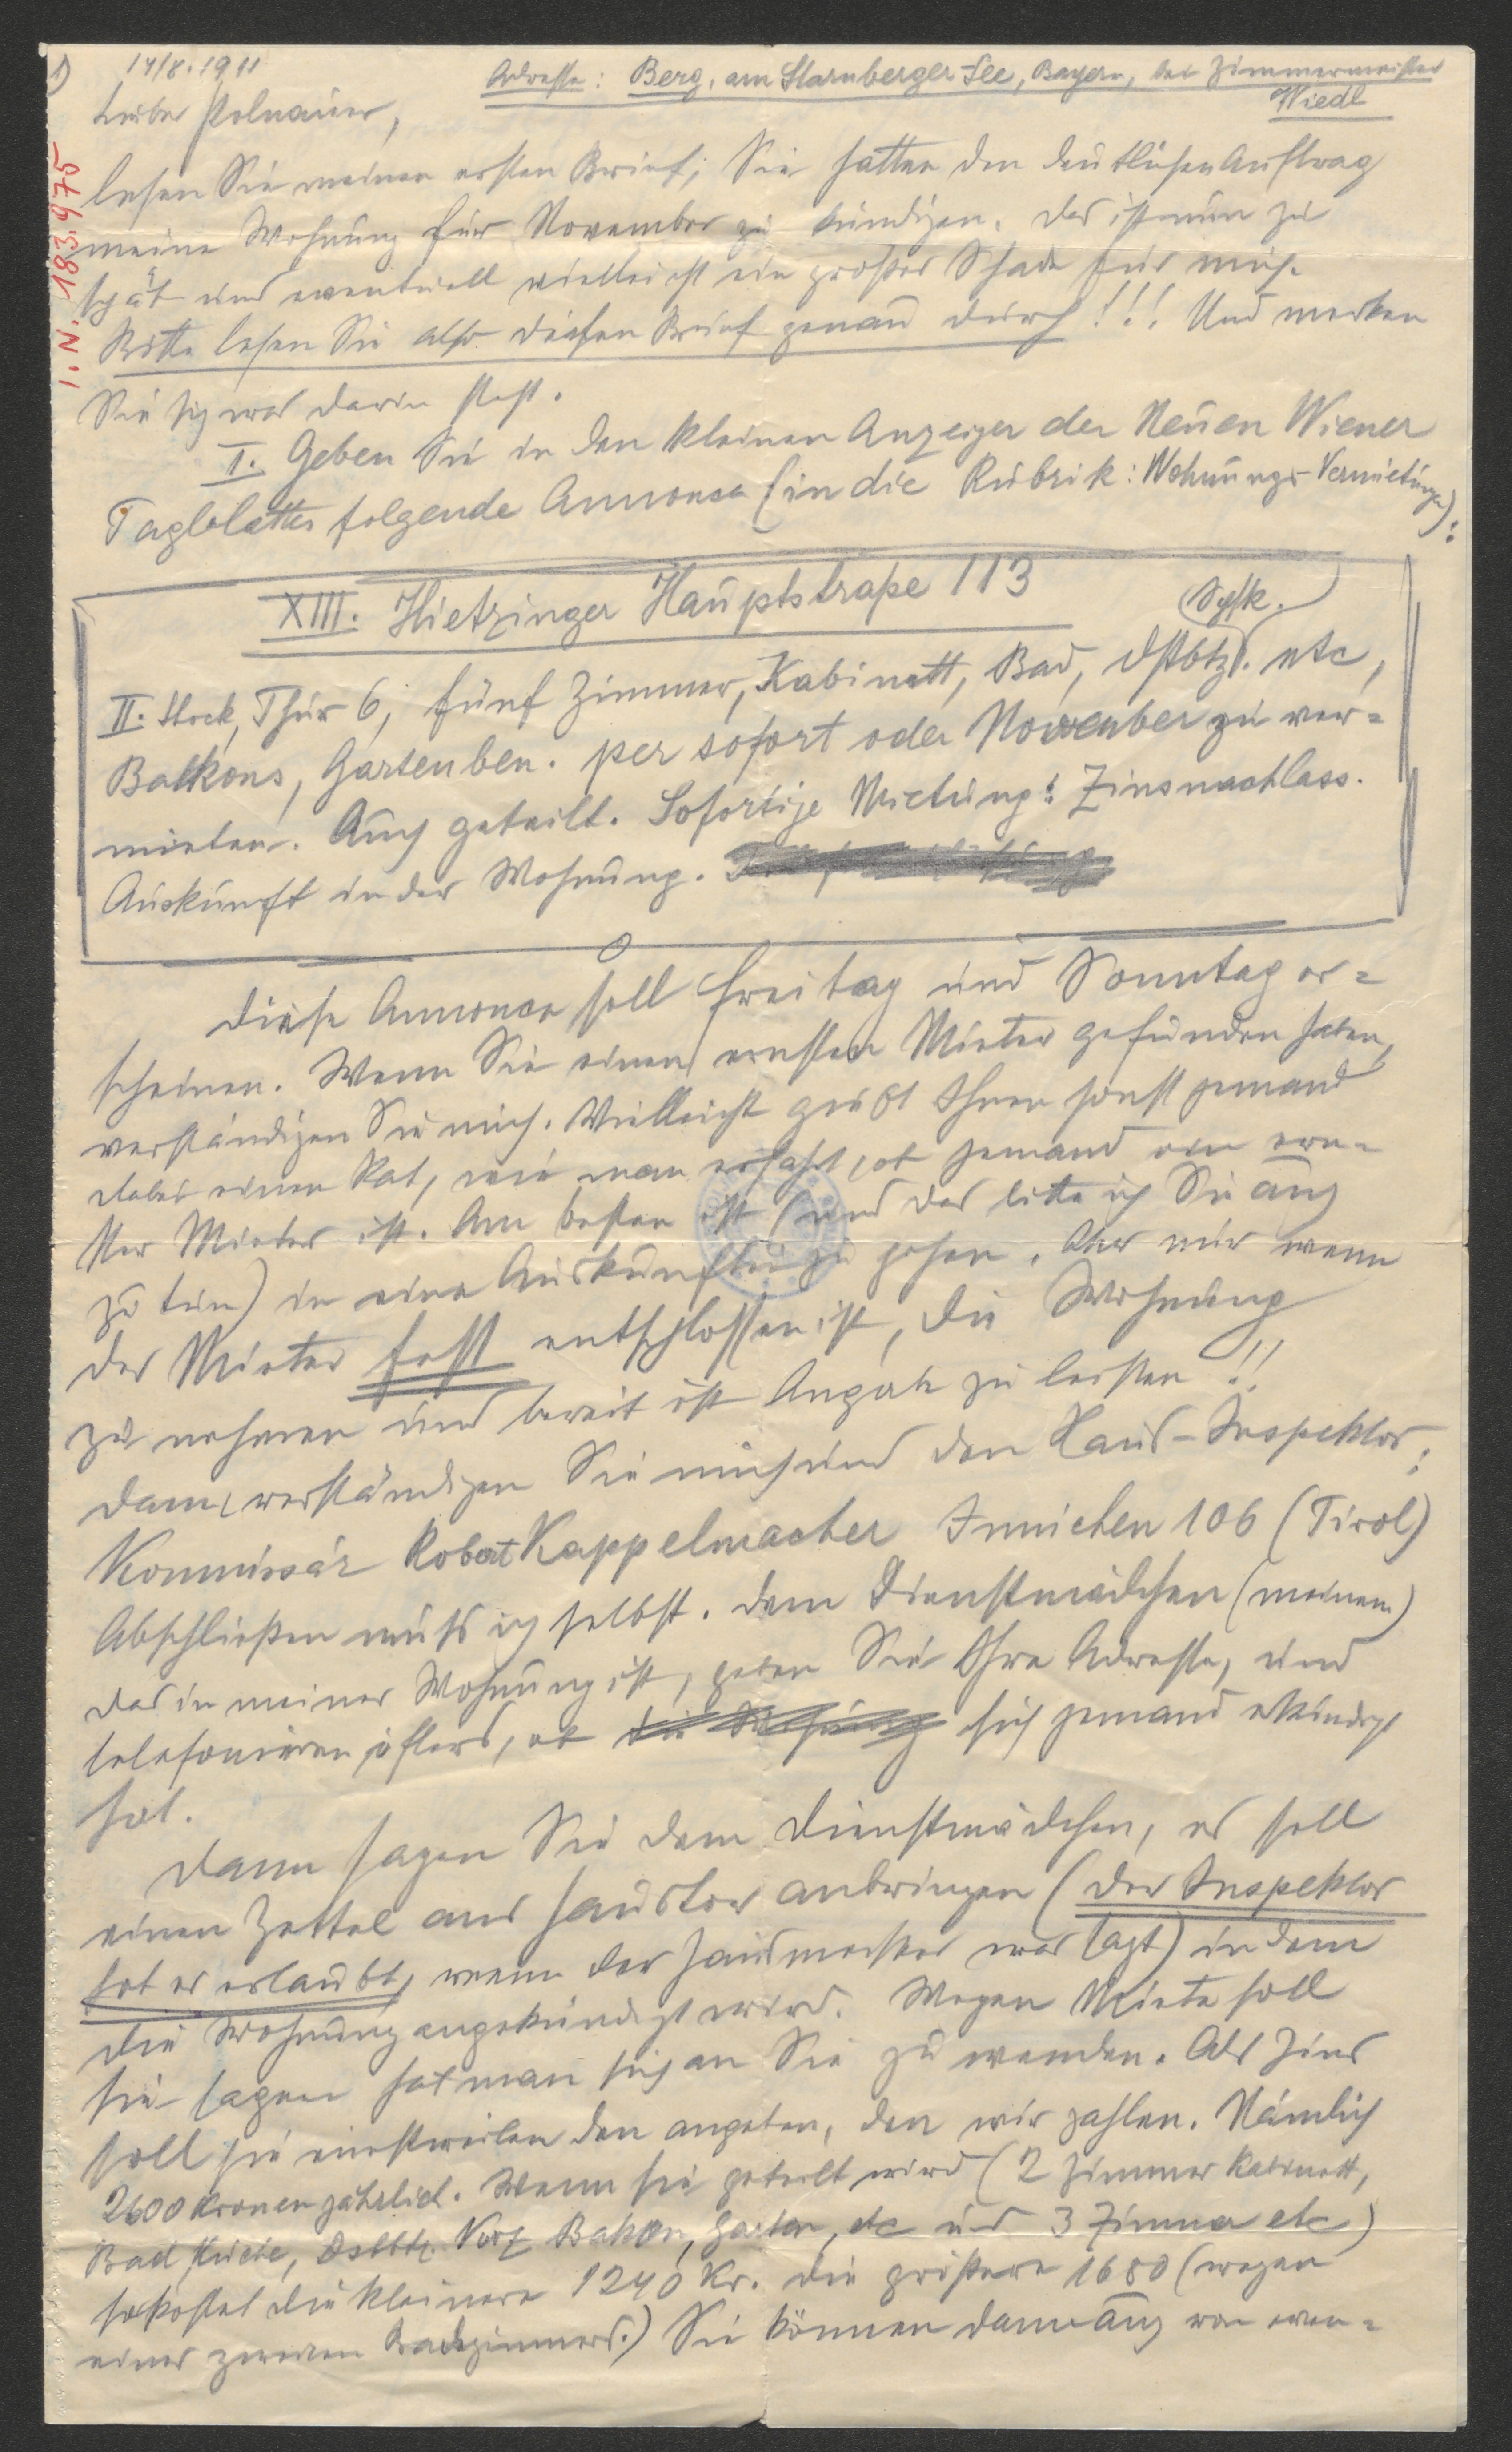 1)
14/8. 1911
Adresse: Berg, am Starnberger-See, Bayern, bei Zimmermeister
Wiedl
Lieber Polnauer,
I. N. 183.975
lesen Sie meinen ersten Brief; Sie hatten den deutlichen Auftrag
meine Wohnung für November zu kündigen. Das ist nun zu
spät und eventuell vielleicht ein großer Schade für mich.
Bitte lesen Sie also diesen Brief genau durch!!! Und merken
Sie sich was darin steht.
I. Geben Sie in den kleinen Anzeiger des Neuen Wiener
Tagblattes folgende Annonce (in die Rubrik: Wohnungs-Vermietungen):
XIII. Hietzinger Hauptstraße 113
II. Stock, Thür 6, fünf Zimmer, Kabinett, Bad, Dstbtz. etc,
Balkons, Gartenben. per sofort oder November zu ver=
mieten. Auch geteilt. Sofortige Mietung: Zinsnachlass.
Auskunft in der Wohnung.
Diese Annonce soll Freitag und Sonntag er=
scheinen. Wenn Sie einen ernsten Mieter gefunden haben,
verständigen Sie mich. Vielleicht giebt Ihnen sonst jemand
dabei einen Rat, wie man erfährt, ob jemand ein ern=
ster Mieter ist. Am besten ist (und das bitte ich Sie auch
zu tun) in eine Auskunftei zu gehen. Aber nur wenn
der Mieter fest entschlossen ist, die Wohnung
zu nehmen und bereit ist Angabe zu leisten!!
Dann verständigen Sie mich und den Haus-Inspektor:
Kommissär Robert Kappelmacher Innichen 106 (Tirol)
Abschließen muss ich selbst. Dem Dienstmädchen (meinem)
das in meiner Wohnung ist, geben Sie Ihre Adresse, und
telefonieren öfters, ob sich jemand erkundigt
hat.
Dann sagen Sie dem Dienstmädchen, es soll
einen Zettel am Haustor anbringen (der Inspektor
hat es erlaubt, wenn der Hausmeister was sagt) in dem
die Wohnung angekündigt wird. Wegen Miete soll
sie sagen hat man sich an Sie zu wenden. Als Zins
soll sie einstweilen den angeben, den wir zahlen. Nämlich
2600 Kronen jährlich. Wenn sie geteilt wird (2 Zimmer Kabinett,
Bad Küche, Dstbtz. Vorz Balkon, Garten, etc und 3 Zimmer etc)
so kostet die kleinere 1240 Kr. die größere 1680 (wegen
eines zweiten Badezimmers.) Sie können dann auch von even=